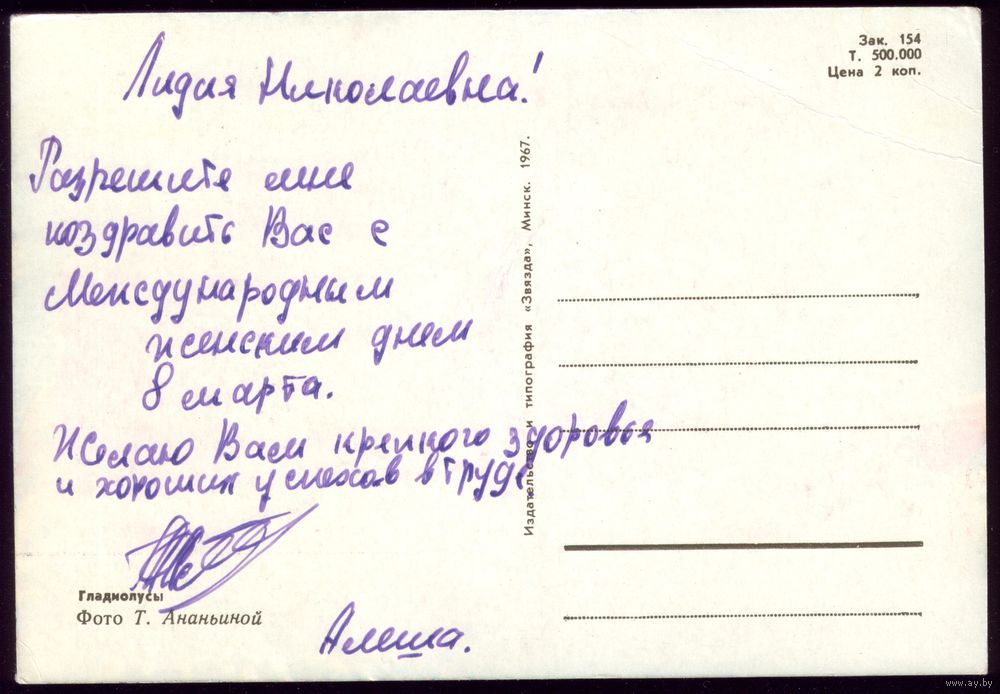 Зак. 154
Т. 500.000
Цена 2 коп.
Лидия Николаевна!
Разрешите мне
поздравить Вас с
Международным
женским днем
8 марта.
Желаю Вам крепкого здоровья
и хороших успехов в труде.
Алеша.
Гладиолусы
Фото Т. Ананьиной
Издательство и типография «Звязда», Минск. 1967.
www.ay.by